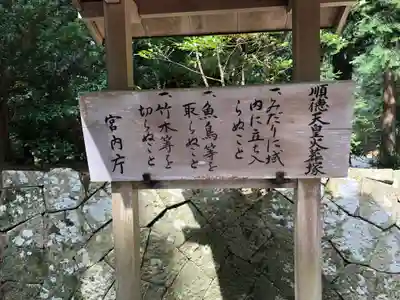 順徳天皇火葬塚
一、みだりに域
内に立ち入
らぬこと
一、魚鳥等を
取らぬこと
一、竹木等を
切らぬこと
宮内庁